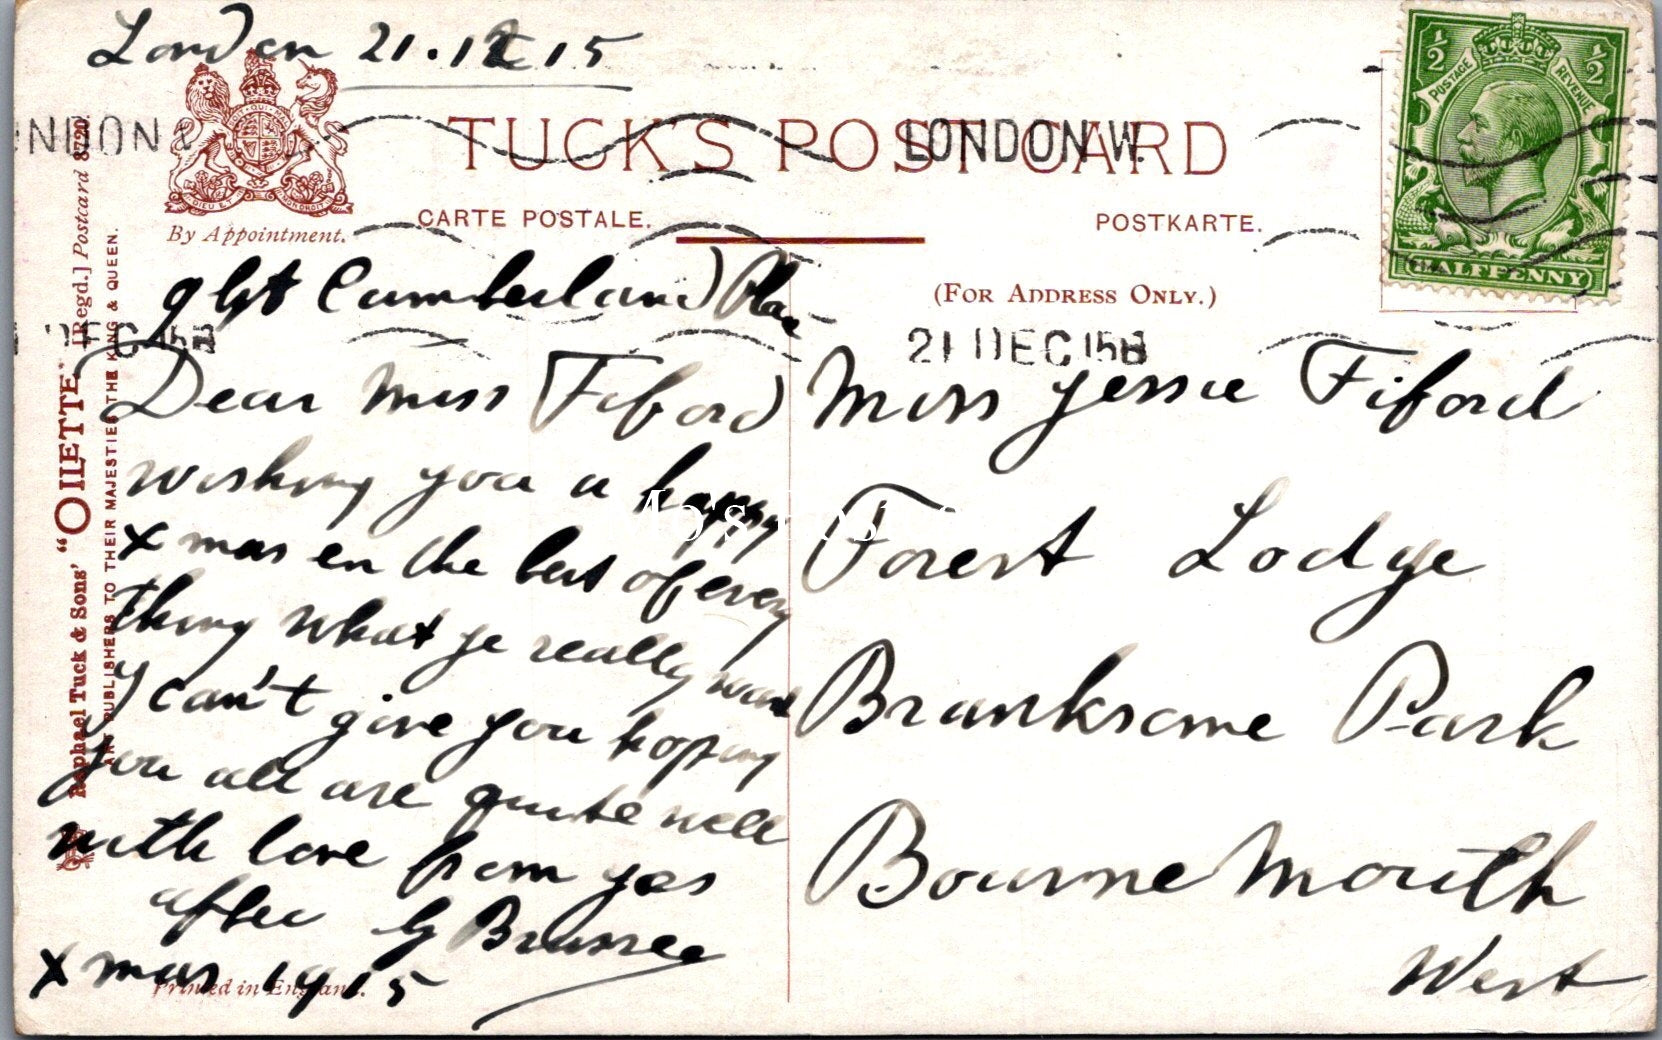 London 21.12 15
NDON
TUCK'S POST CARD
LONDON.W.
CARTE POSTALE.
POSTKARTE.
By Appointment.
(FOR ADDRESS ONLY.)
½ POSTAGE REVENUE ½
HALFPENNY
DIEU ET MON DROIT
Cumberland
DEC 15
21 DEC 15
Raphael Tuck & Sons' "OILETTE" [Regd.] Postcard 8720
ART PUBLISHERS TO THEIR MAJESTIES THE KING & QUEEN.
Dear Miss Fiford
wishing you a happy
Xmas en the best of every
thing what ye really want
I can't give you hoping
you all are quite well
with love from yos
after G
Xmas 1915
Printed in England.
Miss Jessie Fiford
Forest Lodge
Branksome Park
BourneMouth
West